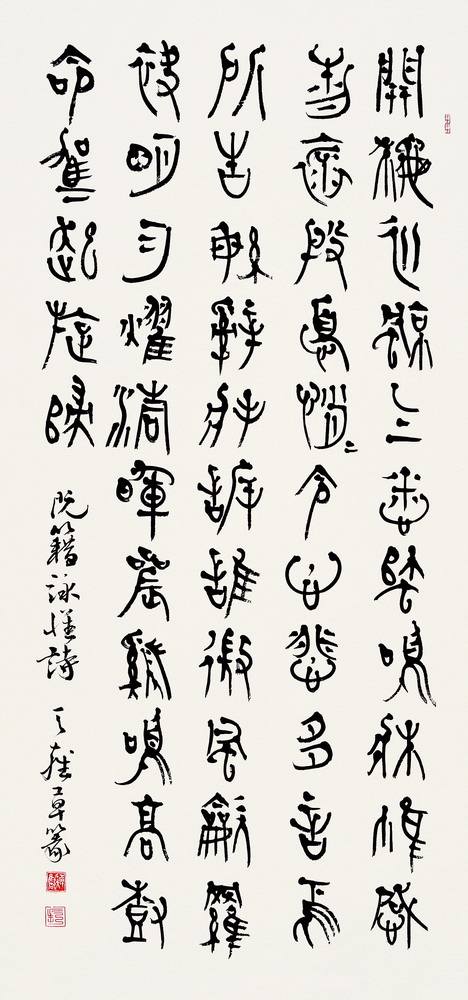 開秋兆涼气蟋蟀鳴牀帷感
物懷殷憂悄〻令心悲多言焉
所告繁辭將訴誰微風吹羅
袂明月耀清暉晨雞鳴高樹
命駕起旋歸
阮籍詠懷詩 草篆